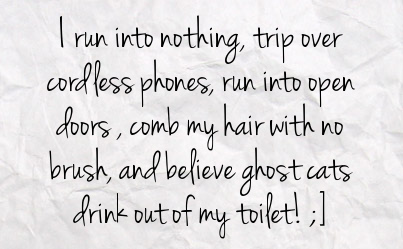 I run into nothing, trip over
cordless phones, run into open
doors , comb my hair with no
brush, and believe ghost cats
drink out of my toilet! ;]